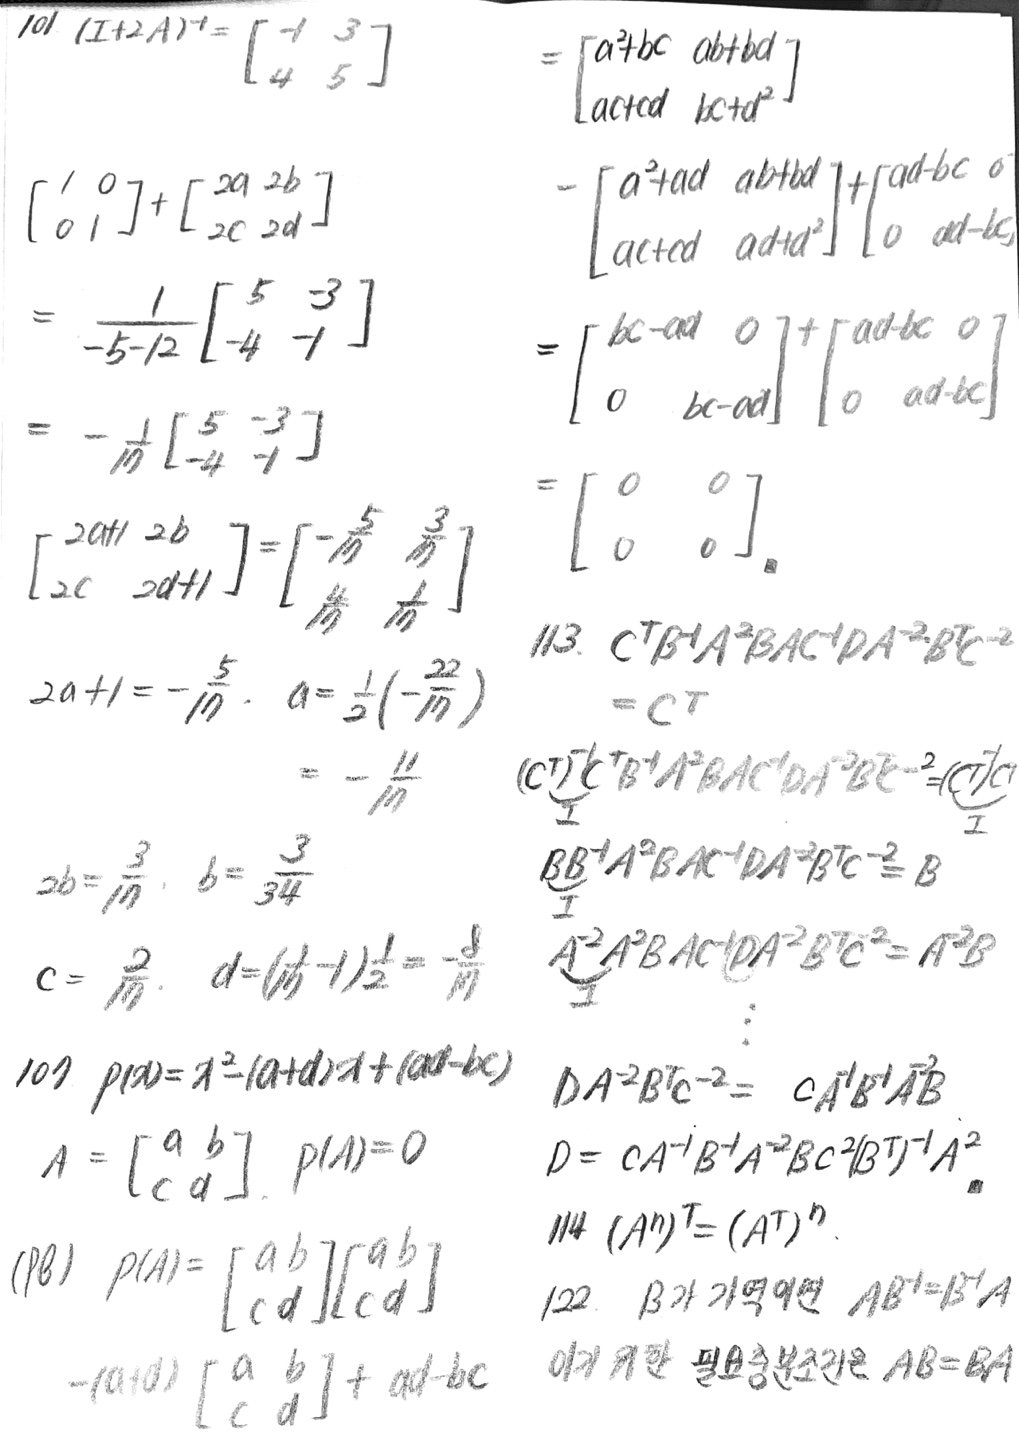 101 (I+2A)⁻¹ = [ -1 3
4 5 ]
[ 1 0
0 1 ] + [ 2a 2b
2c 2d ]
= 1/(-5-12) [ 5 -3
-4 -1 ]
= -1/17 [ 5 -3
-4 -1 ]
[ 2a+1 2b
2c 2d+1 ] = [ -5/17 3/17
4/17 1/17 ]
2a+1 = -5/17. a = 1/2(-22/17)
= -11/17
2b = 3/17. b = 3/34
c = 2/17. d = (1/17 -1)1/2 = -8/17
107 p(x) = x²-(a+d)x+(ad-bc)
A = [ a b
c d ]. p(A) = 0
(pf) p(A) = [ a b
c d ][ a b
c d ]
-(a+d) [ a b
c d ] + ad-bc
= [ a²+bc ab+bd
ac+cd bc+d² ]
- [ a²+ad ab+bd
ac+cd ad+d² ] + [ ad-bc 0
0 ad-bc ]
= [ bc-ad 0
0 bc-ad ] + [ ad-bc 0
0 ad-bc ]
= [ 0 0
0 0 ].
113. CᵀB⁻¹A²BAC⁻¹DA⁻²BᵀC⁻²
= Cᵀ
(Cᵀ)⁻¹CᵀB⁻¹A²BAC⁻¹DA⁻²BᵀC⁻² = (Cᵀ)⁻¹Cᵀ
I I
BB⁻¹A²BAC⁻¹DA⁻²BᵀC⁻² = B
I
A⁻²A²BAC⁻¹DA⁻²BᵀC⁻² = A⁻²B
I
⋮
DA⁻²BᵀC⁻² = CA⁻¹B⁻¹A⁻²B
D = CA⁻¹B⁻¹A⁻²BC²(Bᵀ)⁻¹A².
114 (Aⁿ)ᵀ = (Aᵀ)ⁿ.
122. B가 가역이면 AB⁻¹=B⁻¹A
이기 위한 필요충분조건은 AB=BA